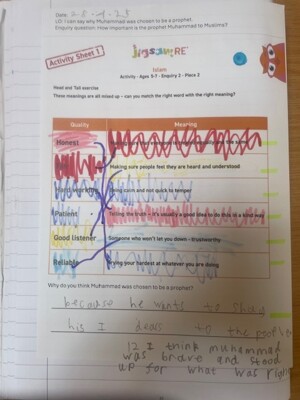 Date:
LO: I can say why Muhammad was chosen to be a prophet
Enquiry question: How important is the prophet Muhammad to Muslims?
Activity Sheet 1
Jigsaw RE
Islam
Activity - Ages 5-7 - Enquiry 2 - Piece 2
Head and Tail exercise
These meanings are all mixed up – can you match the right word with the right meaning?
Quality Meaning
Honest
Making sure people feel they are heard and understood
Hard working Being calm and not quick to temper
Patient Telling the truth – it's usually a good idea to do this in a kind way
Good listener Someone who won't let you down - trustworthy
Reliable Trying your hardest at whatever you are doing
Why do you think Muhammad was chosen to be a prophet?
because he wants to
his I deas to the people
I think muhammad
was brave and stood
up for what was right